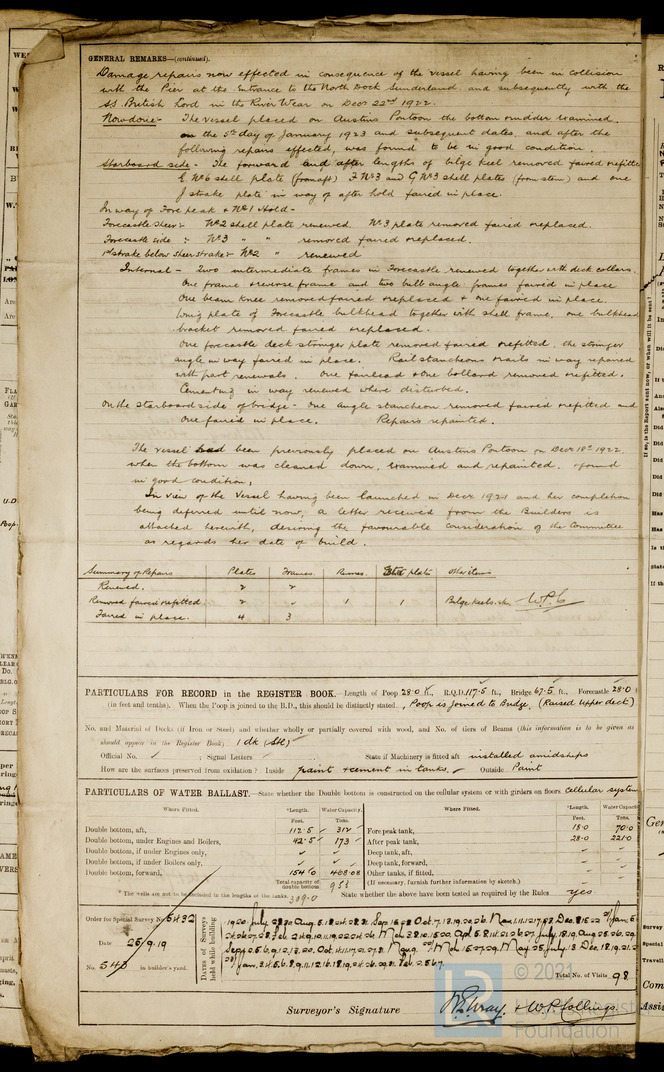 GENERAL REMARKS—(continued).
Damage repairs now effected in consequence of the vessel having been in collision
with the Pier at the Entrance to the North Dock Sunderland, and subsequently with the
SS. British Lord in the River Wear on Decr 22nd 1922.
Now done:- The vessel placed on Austins Pontoon the bottom & rudder examined,
on the 5th day of January 1923 and subsequent dates, and after the
following repairs effected, was found to be in good condition.
Starboard side - The forward and after lengths of bilge keel removed faired & refitted
E No 6 shell plate (from aft) F No 3 and G No 3 shell plates (from stem) and one
J strake plate in way of after hold faired in place.
In way of Fore peak & No 1 Hold -
Forecastle sheer:- No 2 shell plate renewed No 3 plate removed faired & replaced.
Forecastle side :- No 3 " " removed faired & replaced.
1st strake below Sheerstrake:- No 2 " renewed
Internal - Two intermediate frames in Forecastle renewed together with deck collars.
One frame & reverse frame and two bulb angle frames faired in place
One beam knee removed faired & replaced & one faired in place.
Wing plate of Forecastle bulkhead together with shell frame, one bulkhead
bracket removed faired & replaced.
One forecastle deck stringer plate removed faired & refitted, the stringer
angle in way faired in place. Rail stancheons & rails in way repaired
with part renewals. One fairlead & one bollard removed & refitted.
Cementing in way renewed where disturbed.
On the starboard side of bridge - One angle stancheon removed faired & refitted and
one faired in place. Repairs repainted.
The vessel had been previously placed on Austins Pontoon on Decr 18th 1922
when the bottom was cleaned down, examined and repainted. & found
in good condition,
In view of the Vessel having been launched in Decr 1921 and her completion
being deferred until now, a letter received from the Builders is
attached herewith, desiring the favourable consideration of the Committee
as regards her date of build.
Summary of Repairs Plates Frames. plate Other items
Renewed. 2 2
Removed faired & refitted. 2 " 1 1 Bilge keels &c. W.P.C
Faired in place. 4 3
PARTICULARS FOR RECORD in the REGISTER BOOK.—Length of Poop 28.0 ft., R.Q.D. 117.5 ft., Bridge 67.5 ft., Forecastle 28.0
(in feet and tenths). When the Poop is joined to the B.D., this should be distinctly stated, Poop is joined to Bridge. (Raised upper deck)
No. and Material of Decks (if Iron or Steel) and whether wholly or partially covered with wood, and No. of tiers of Beams (this information is to be given as
should appear in the Register Book) 1 dk (Stl)
Official No. ; Signal Letters State if Machinery is fitted aft installed amidships
How are the surfaces preserved from oxidation? Inside paint & cement in tanks. Outside Paint
PARTICULARS OF WATER BALLAST.—State whether the Double bottom is constructed on the cellular system or with girders on floors. Cellular system
Where Fitted. *Length. Water Capacity. Where Fitted. *Length. Water Capacity
Feet. Tons. Feet. Tons.
Double bottom, aft, 112.5 312 Fore peak tank, 18.0 70.0
Double bottom, under Engines and Boilers, 42.5 173 After peak tank, 28.0 221.0
Double bottom, if under Engines only, Deep tank, aft,
Double bottom, if under Boilers only, Deep tank, forward,
Double bottom, forward, 154.0 468.08 Other tanks, if fitted,
Total capacity of double bottom 953 (If necessary, furnish further information by sketch.)
* The wells are not to be included in the lengths of the tanks. 309.0 State whether the above have been tested as required by the Rules yes
Order for Special Survey No 5432
Date 25/9/19
No. 540 in builder's yard.
Dates of Surveys held while building
Total No. of Visits 98
Surveyor's Signature & W.P. Collings
© 2021
Foundation